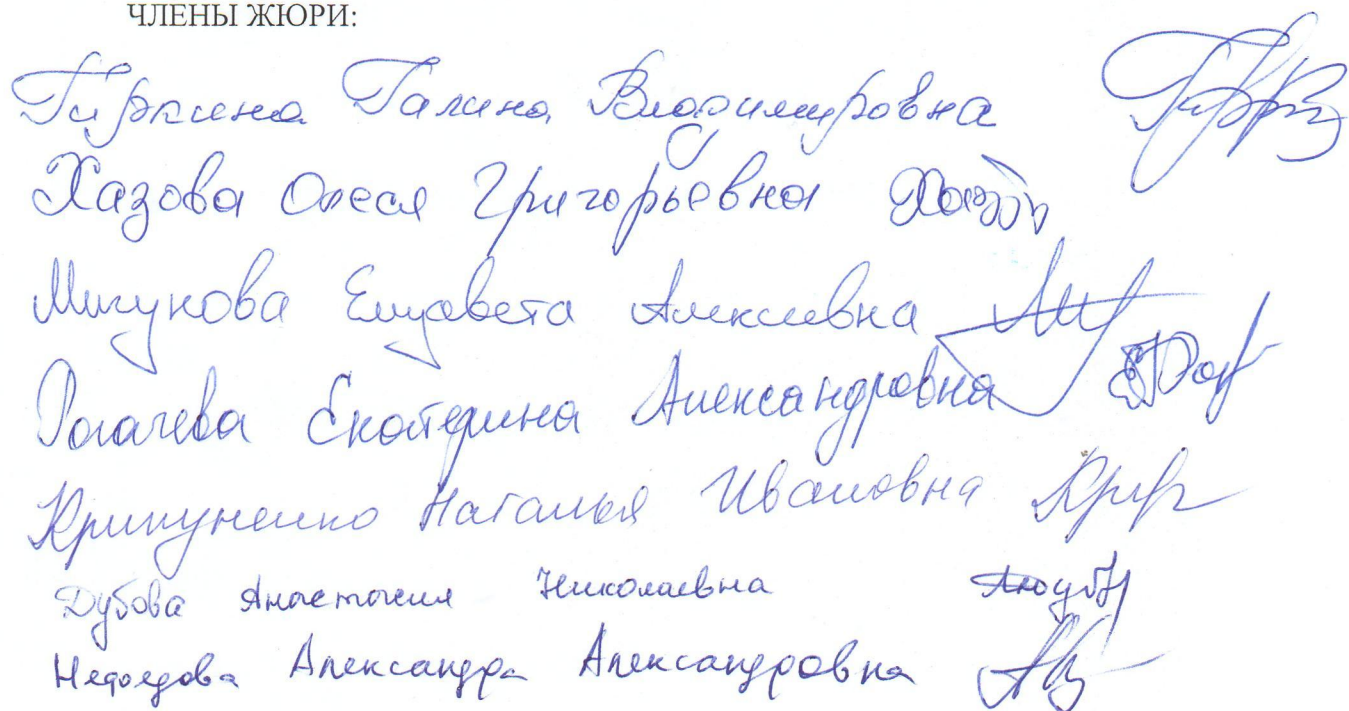 ЧЛЕНЫ ЖЮРИ:
Галина Владимировна
Хазова Олеся Григорьевна
Мигунова Елизавета Алексеевна
Рогачева Екатерина Александровна
Наталья Ивановна
Дубова Анастасия Николаевна
Нефоедова Александра Александровна